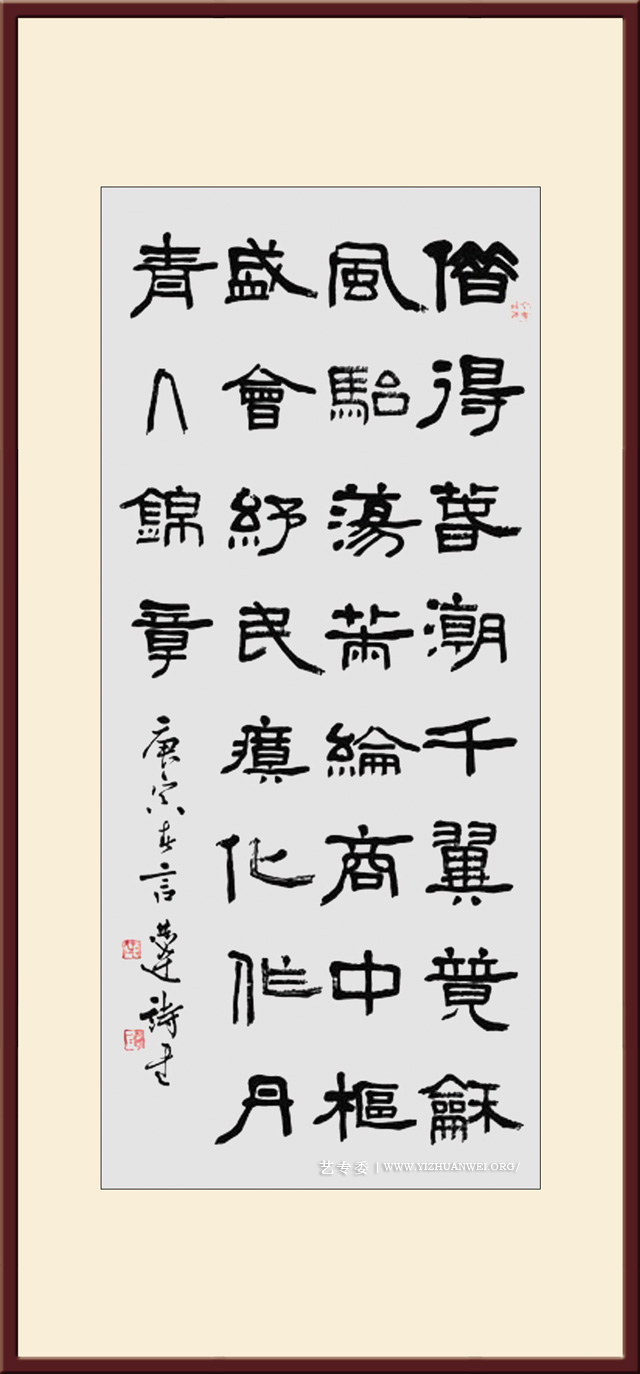 借得春潮千翼竟龢
風駘蕩策綸商中樞
盛會紓民瘼化作丹
青入錦章
庚寅春言恭達詩書
艺专委 | WWW.YIZHUANWEI.ORG/